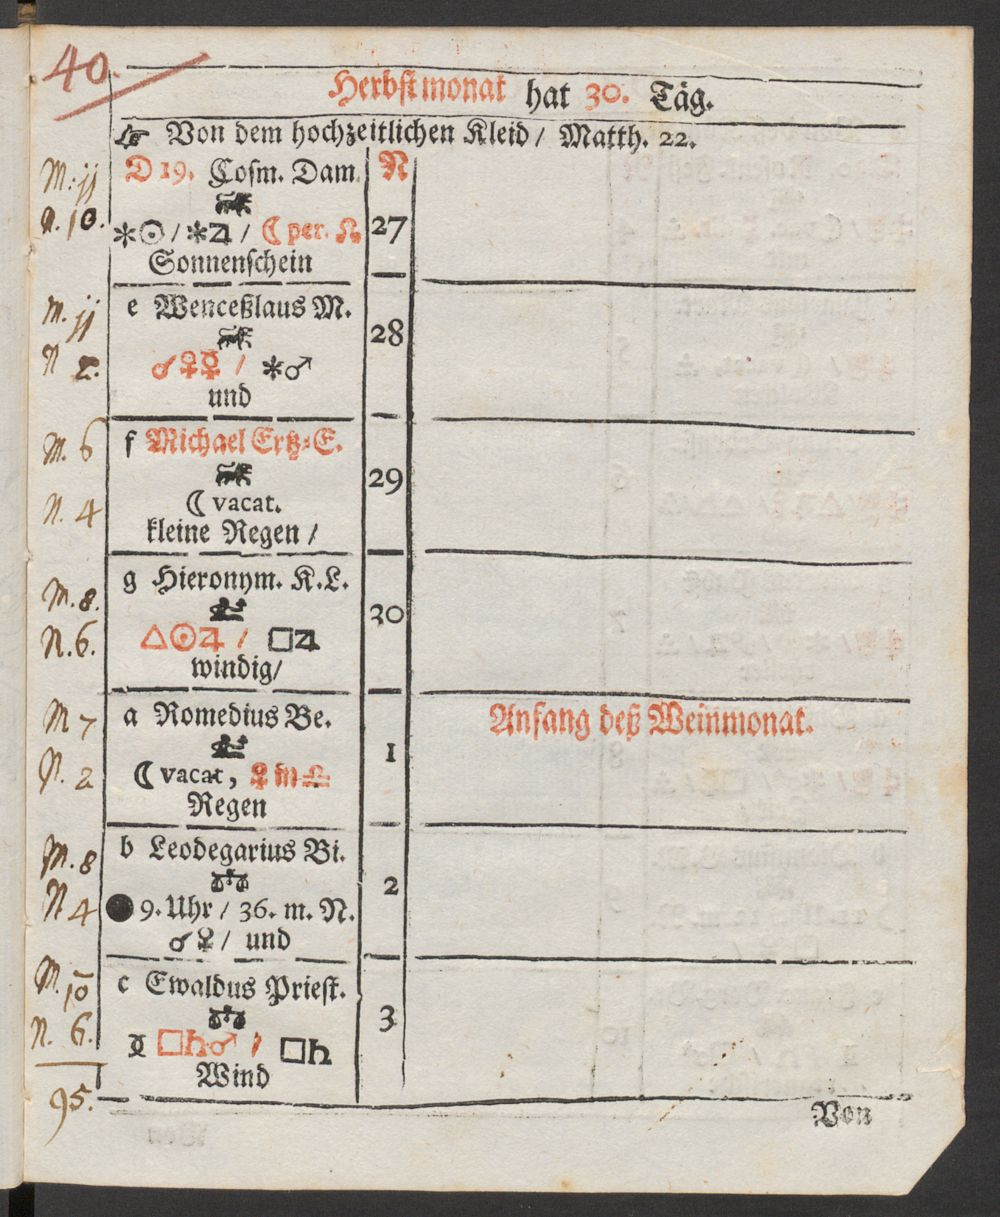 40.
Herbstmonat hat 30. Täg.
☞ Von dem hochzeitlichen Kleid / Matth. 22.
M: jj
N. 10.
D 19. Cosm. Dam.
N
27
✶☉ / ✶♃ / ☾ per. ☊
Sonnenschein
M. jj
N 2.
e Wenceßlaus M.
28
☌♀☿ / ✶♂
und
M. 6
N. 4
f Michael Ertz=E.
29
☾ vacat.
kleine Regen /
M. 8.
N. 6.
g Hieronym. K.L.
30
△☉♃ / □♃
windig /
M 7
N. 2
a Romedius Be.
1
Anfang deß Weinmonat.
☾ vacat, ☿ in ♎
Regen
M. 8
N 4
b Leodegarius Bi.
2
● 9. Uhr / 36. m. N.
☌☿ / und
M. 10
N. 6.
c Ewaldus Priest.
3
□♄♂ / □♄
Wind
95.
Von